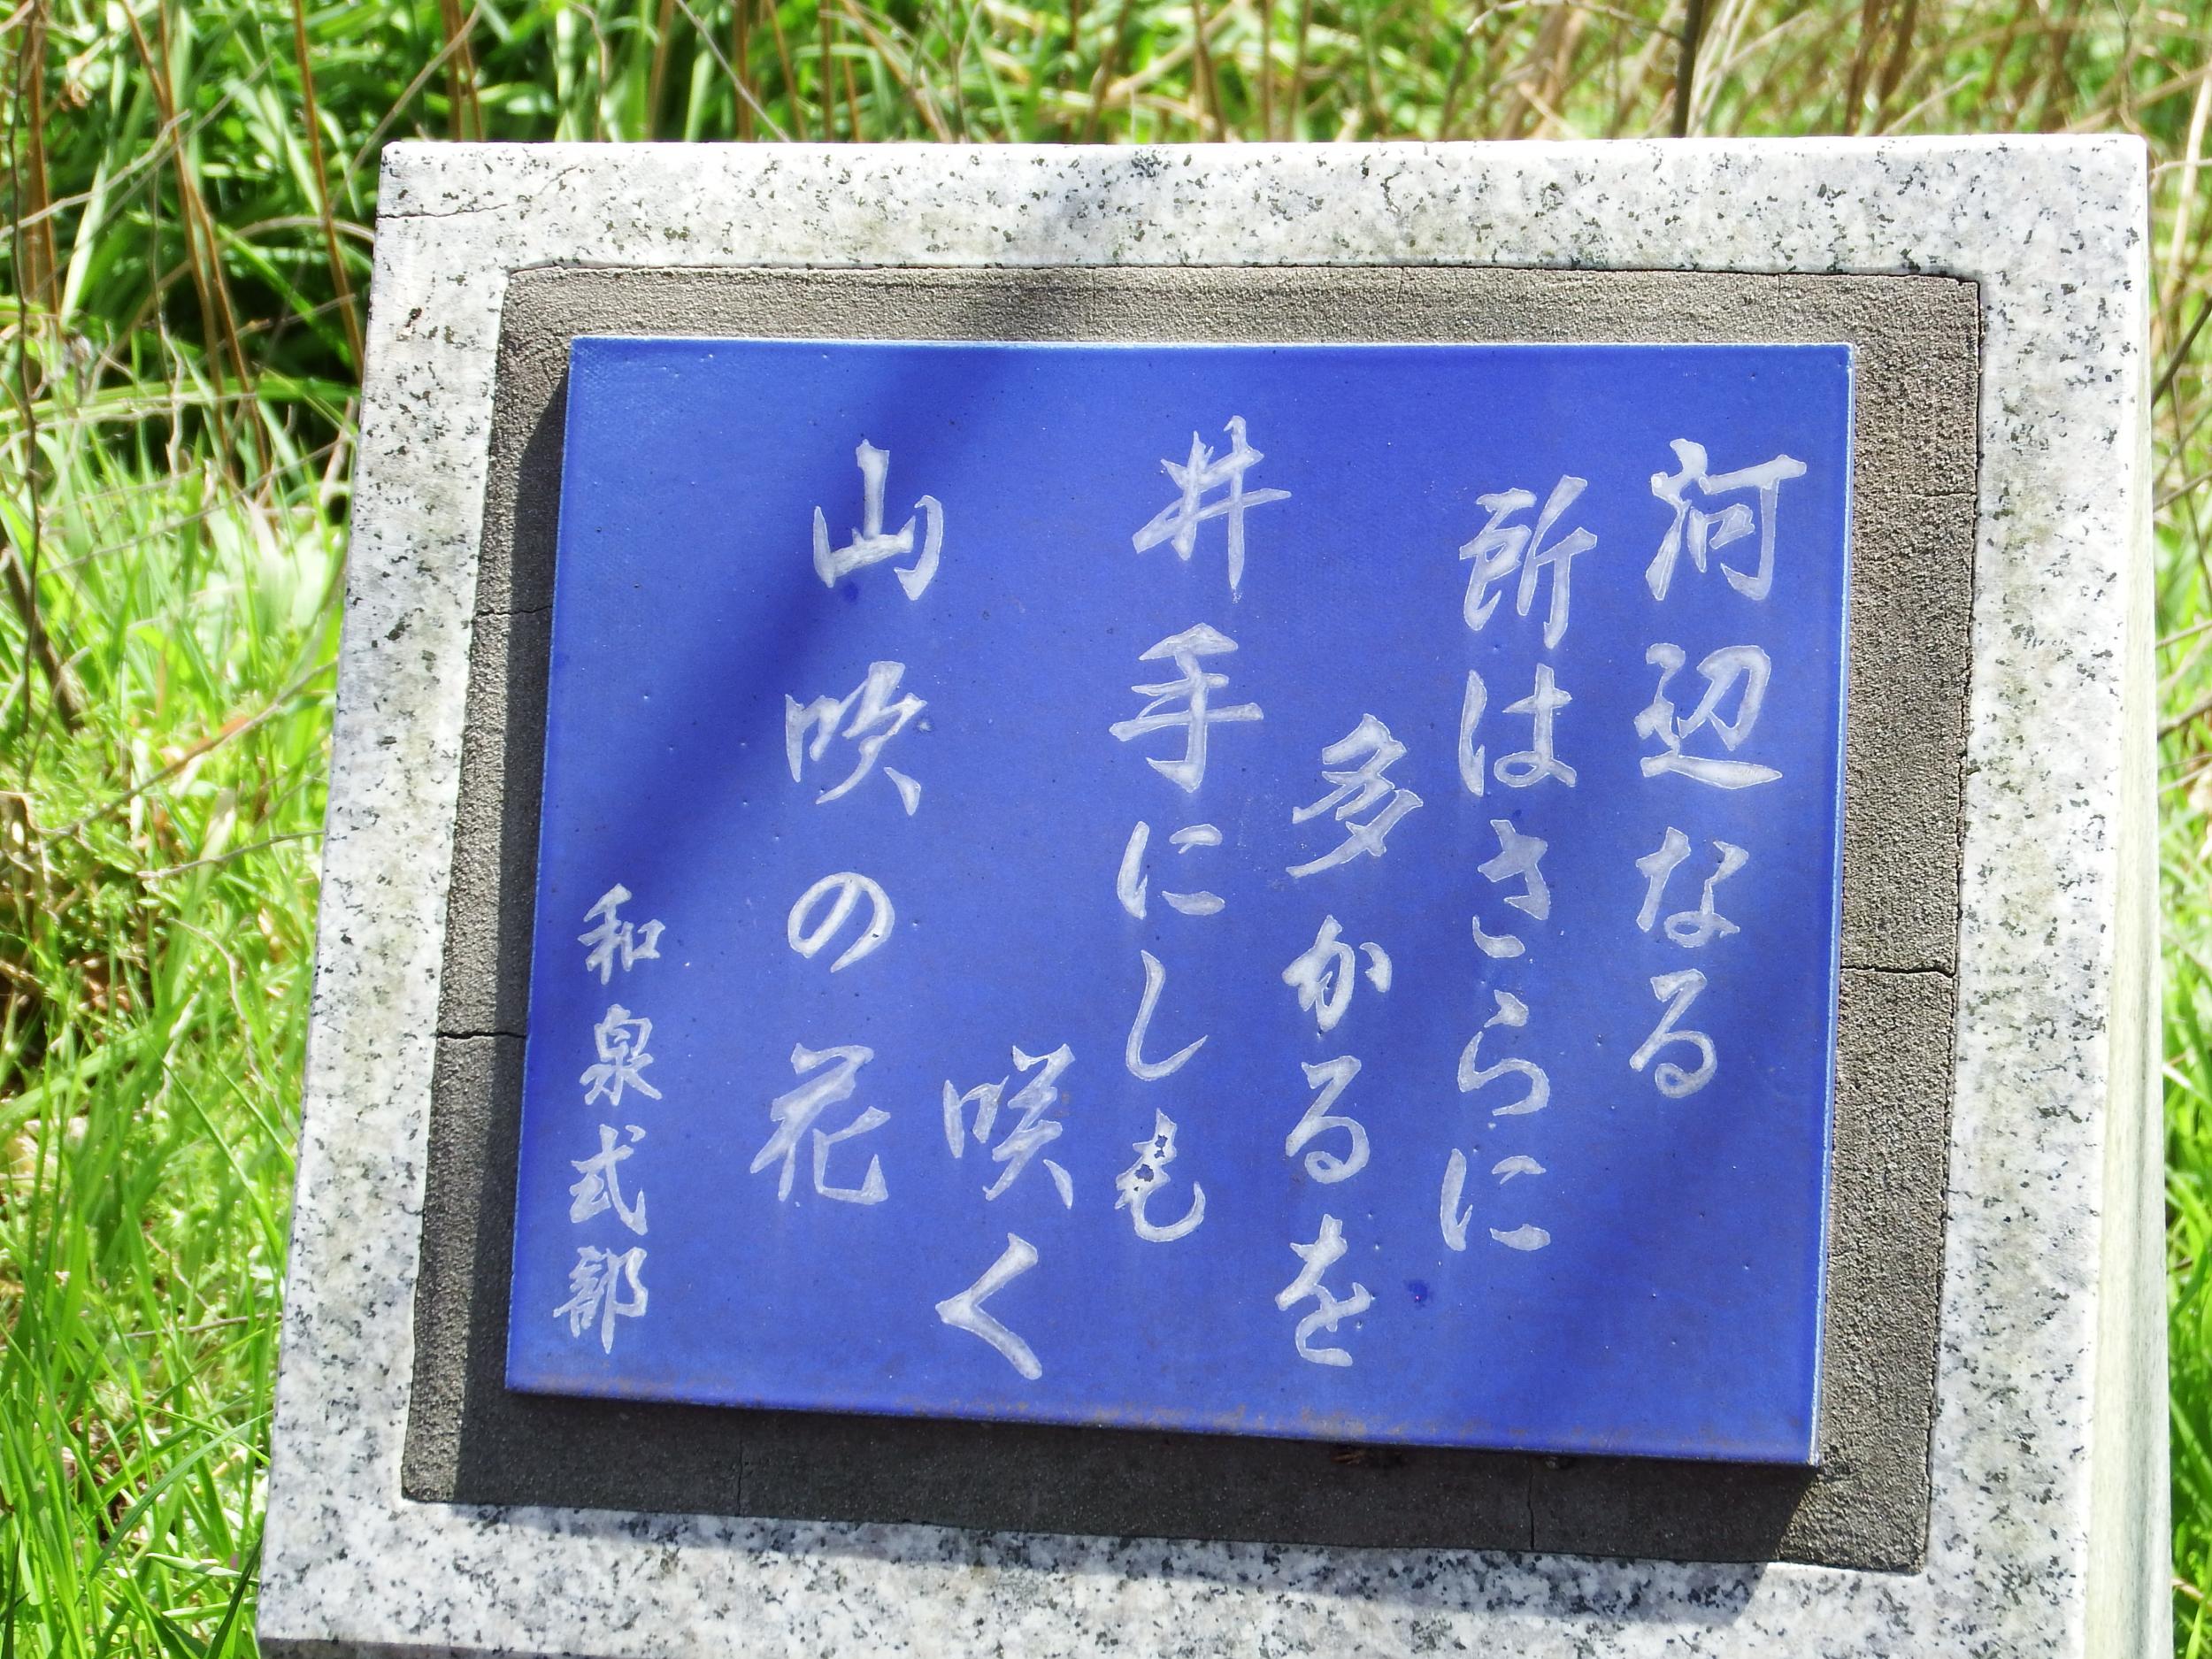 河辺なる
所はさらに
多かるを
井手にしも
咲く
山吹の花
和泉式部